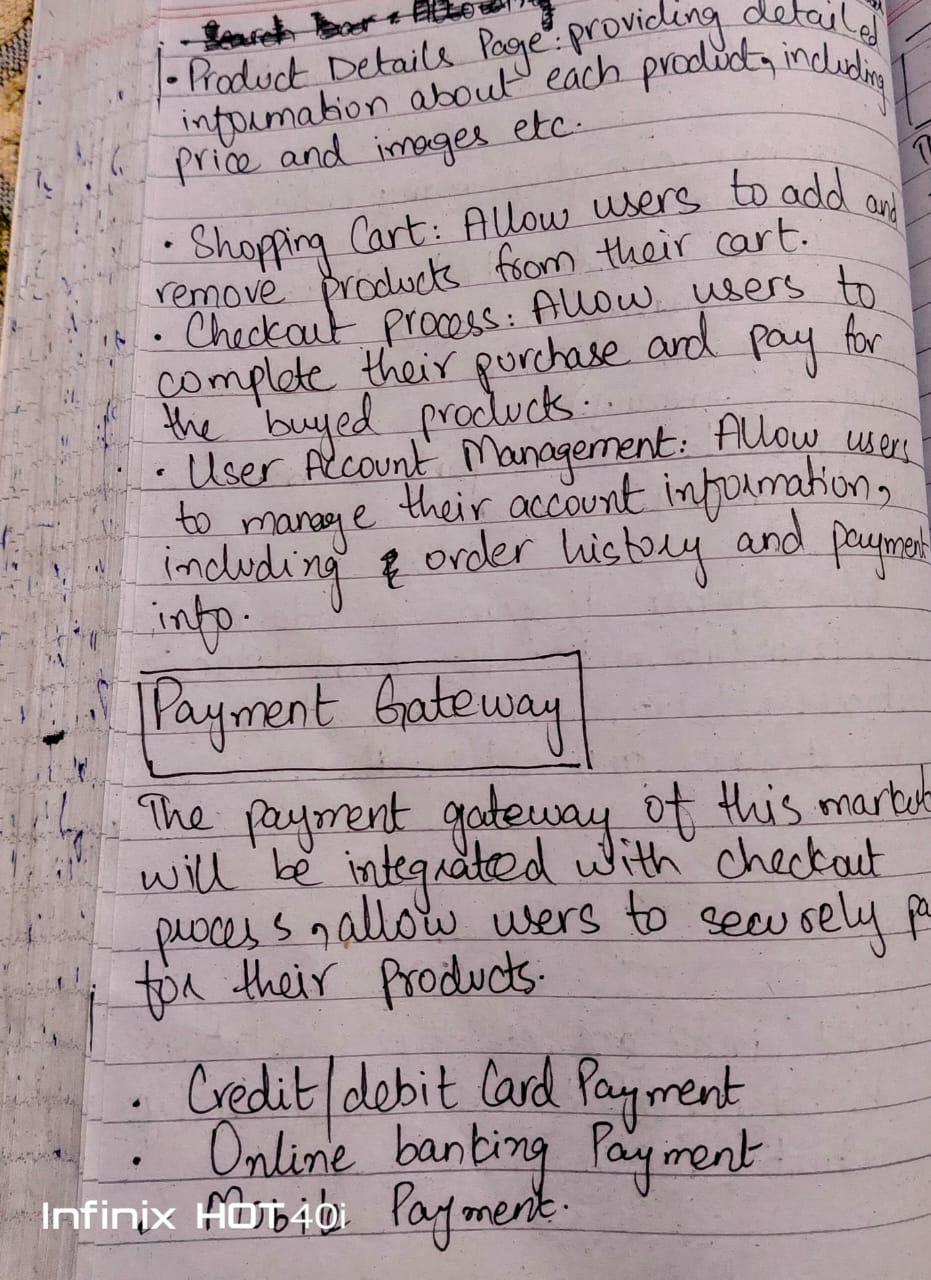 • Search bar: Allowing
• Product Details Page: providing detailed
information about each product, including
price and images etc.
• Shopping Cart: Allow users to add and
remove products from their cart.
• Checkout process: Allow users to
complete their purchase and pay for
the buyed products.
• User Account Management: Allow users
to manage their account information,
including order history and payment
info.
Payment Gateway
The payment gateway of this
will be integrated with checkout
process, allow users to securely
for their products.
• Credit/debit Card Payment
• Online banking Payment
• Mobile Payment.
Infinix HOT 40i